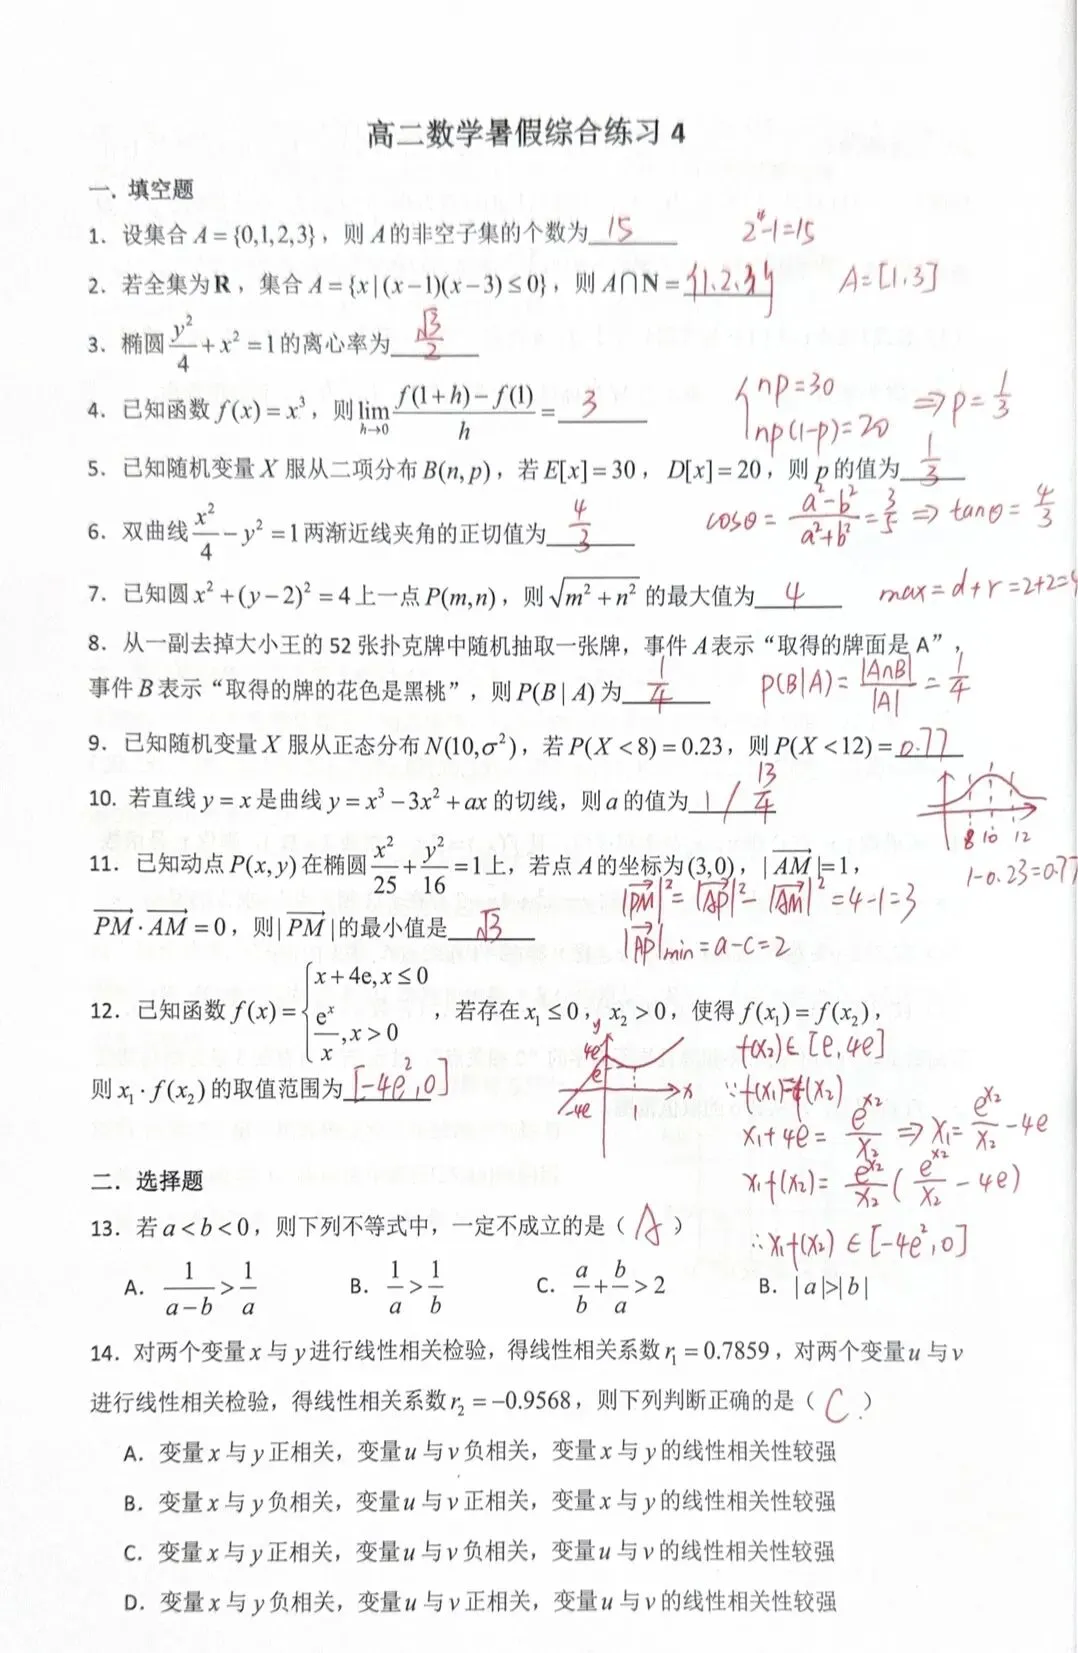 高二数学暑假综合练习 4
一. 填空题
1. 设集合 A = {0,1,2,3}，则 A 的非空子集的个数为 15 2⁴-1=15
2. 若全集为 R，集合 A = {x | (x−1)(x−3) ≤ 0}，则 A∩N = {1,2,3} A=[1,3]
3. 椭圆 y²/4 + x² = 1 的离心率为 √3/2
4. 已知函数 f(x) = x³，则 lim h→0 (f(1+h) − f(1))/h = 3 { np=30 np(1-p)=20 ⇒ p=1/3
5. 已知随机变量 X 服从二项分布 B(n, p)，若 E[x] = 30，D[x] = 20，则 p 的值为 1/3
6. 双曲线 x²/4 − y² = 1 两渐近线夹角的正切值为 4/3 cosθ = (a²-b²)/(a²+b²) = 3/5 ⇒ tanθ = 4/3
7. 已知圆 x² + (y−2)² = 4 上一点 P(m,n)，则 √(m² + n²) 的最大值为 4 max = d+r = 2+2=4
8. 从一副去掉大小王的 52 张扑克牌中随机抽取一张牌，事件 A 表示“取得的牌面是 A”，
事件 B 表示“取得的牌的花色是黑桃”，则 P(B | A) 为 1/4 P(B|A) = |A∩B|/|A| = 1/4
9. 已知随机变量 X 服从正态分布 N(10,σ²)，若 P(X < 8) = 0.23，则 P(X < 12) = 0.77
10. 若直线 y = x 是曲线 y = x³ − 3x² + ax 的切线，则 a 的值为 1 / 13/4
8 10 12
1-0.23=0.77
11. 已知动点 P(x, y) 在椭圆 x²/25 + y²/16 = 1 上，若点 A 的坐标为 (3,0)，| AM |= 1，
PM · AM = 0，则 | PM | 的最小值是 √3
|PM|² = |AP|² − |AM|² = 4-1=3
|AP|min = a-c = 2
12. 已知函数 f(x) = { x + 4e, x ≤ 0 eˣ/x, x > 0，若存在 x₁ ≤ 0，x₂ > 0，使得 f(x₁) = f(x₂)，
则 x₁ · f(x₂) 的取值范围为 [-4e², 0]
y 4e e -4e 1 x
f(x₂) ∈ [e, 4e]
∵ f(x₁)=f(x₂)
x₁+4e = e^x₂/x₂ ⇒ x₁ = e^x₂/x₂ - 4e
x₁f(x₂) = e^x₂/x₂ ( e^x₂/x₂ - 4e)
∴ x₁f(x₂) ∈ [-4e², 0]
二. 选择题
13. 若 a < b < 0，则下列不等式中，一定不成立的是（ A ）
A. 1/(a−b) > 1/a B. 1/a > 1/b C. a/b + b/a > 2 B. | a |>| b |
14. 对两个变量 x 与 y 进行线性相关检验，得线性相关系数 r₁ = 0.7859，对两个变量 u 与 v
进行线性相关检验，得线性相关系数 r₂ = −0.9568，则下列判断正确的是（ C ）
A. 变量 x 与 y 正相关，变量 u 与 v 负相关，变量 x 与 y 的线性相关性较强
B. 变量 x 与 y 负相关，变量 u 与 v 正相关，变量 x 与 y 的线性相关性较强
C. 变量 x 与 y 正相关，变量 u 与 v 负相关，变量 u 与 v 的线性相关性较强
D. 变量 x 与 y 负相关，变量 u 与 v 正相关，变量 u 与 v 的线性相关性较强